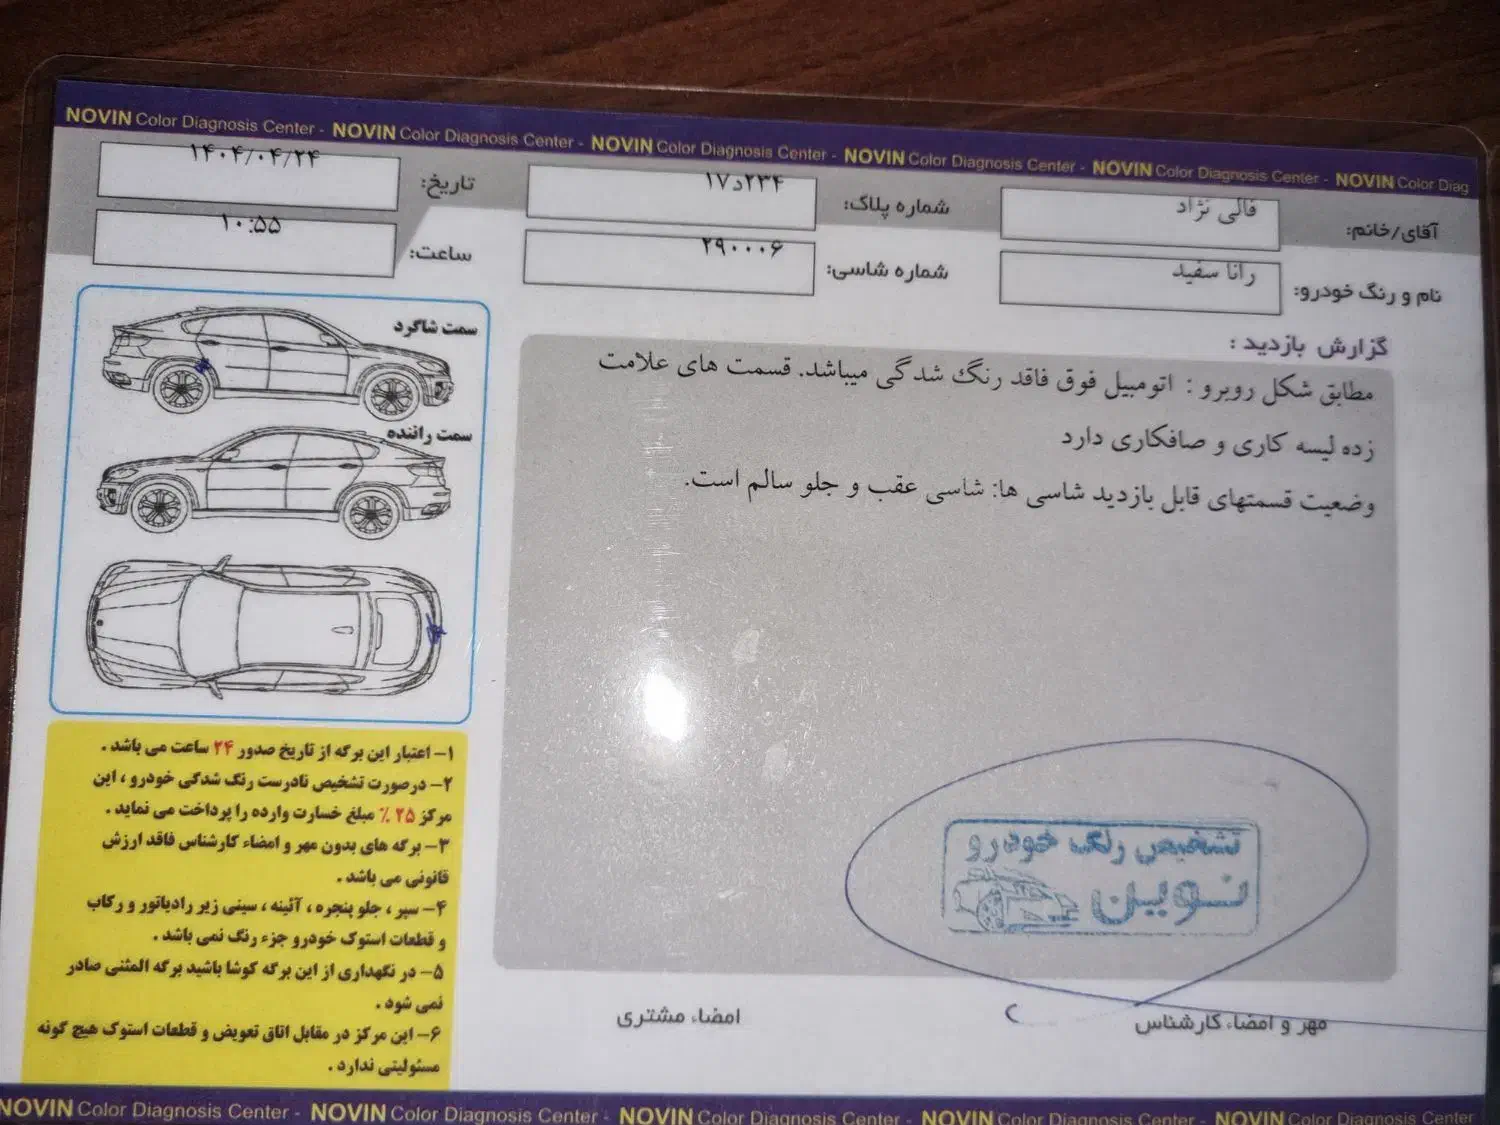 NOVIN Color Diagnosis Center - NOVIN Color Diagnosis Center - NOVIN Color Diagnosis Center - NOVIN Color Diagnosis Center - NOVIN Color Diagnosis Center - NOVIN Color Diag
آقای/خانم: قالی نژاد
شماره پلاک: ۲۳۴د۱۷
تاریخ: ۱۴۰۴/۰۴/۲۴
نام و رنگ خودرو: رانا سفید
شماره شاسی: ۲۹۰۰۰۶
ساعت: ۱۰:۵۵
گزارش بازدید :
مطابق شکل روبرو : اتومبیل فوق فاقد رنگ شدگی میباشد. قسمت های علامت
زده لیسه کاری و صافکاری دارد
وضعیت قسمتهای قابل بازدید شاسی ها: شاسی عقب و جلو سالم است.
سمت شاگرد
سمت راننده
۱- اعتبار این برگه از تاریخ صدور ۲۴ ساعت می باشد .
۲- درصورت تشخیص نادرست رنگ شدگی خودرو ، این
مرکز ۲۵ ٪ مبلغ خسارت وارده را پرداخت می نماید .
۳- برگه های بدون مهر و امضاء کارشناس فاقد ارزش
قانونی می باشد .
۴- سپر ، جلو پنجره ، آئینه ، سینی زیر رادیاتور و رکاب
و قطعات استوک خودرو جزء رنگ نمی باشد .
۵- در نگهداری از این برگه کوشا باشید برگه المثنی صادر
نمی شود .
۶- این مرکز در مقابل اتاق تعویض و قطعات استوک هیچ گونه
مسئولیتی ندارد .
تشخیص رنگ خودرو
نوین
مهر و امضاء کارشناس
امضاء مشتری
NOVIN Color Diagnosis Center - NOVIN Color Diagnosis Center - NOVIN Color Diagnosis Center - NOVIN Color Diagnosis Center - NOVIN Color Diagnosis Center